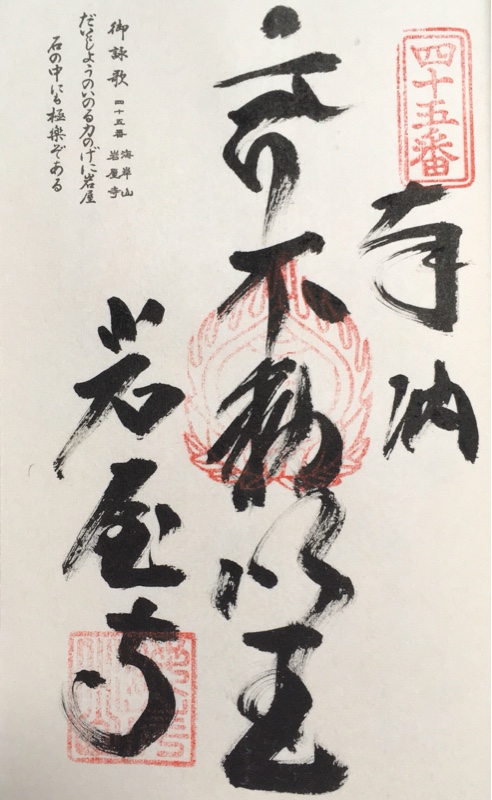 四十五番
奉納
不動明王
岩屋寺
御詠歌 四十五番 海岸山 岩屋寺
だいしようのいのる力のげに岩屋
石の中にも極楽ぞある